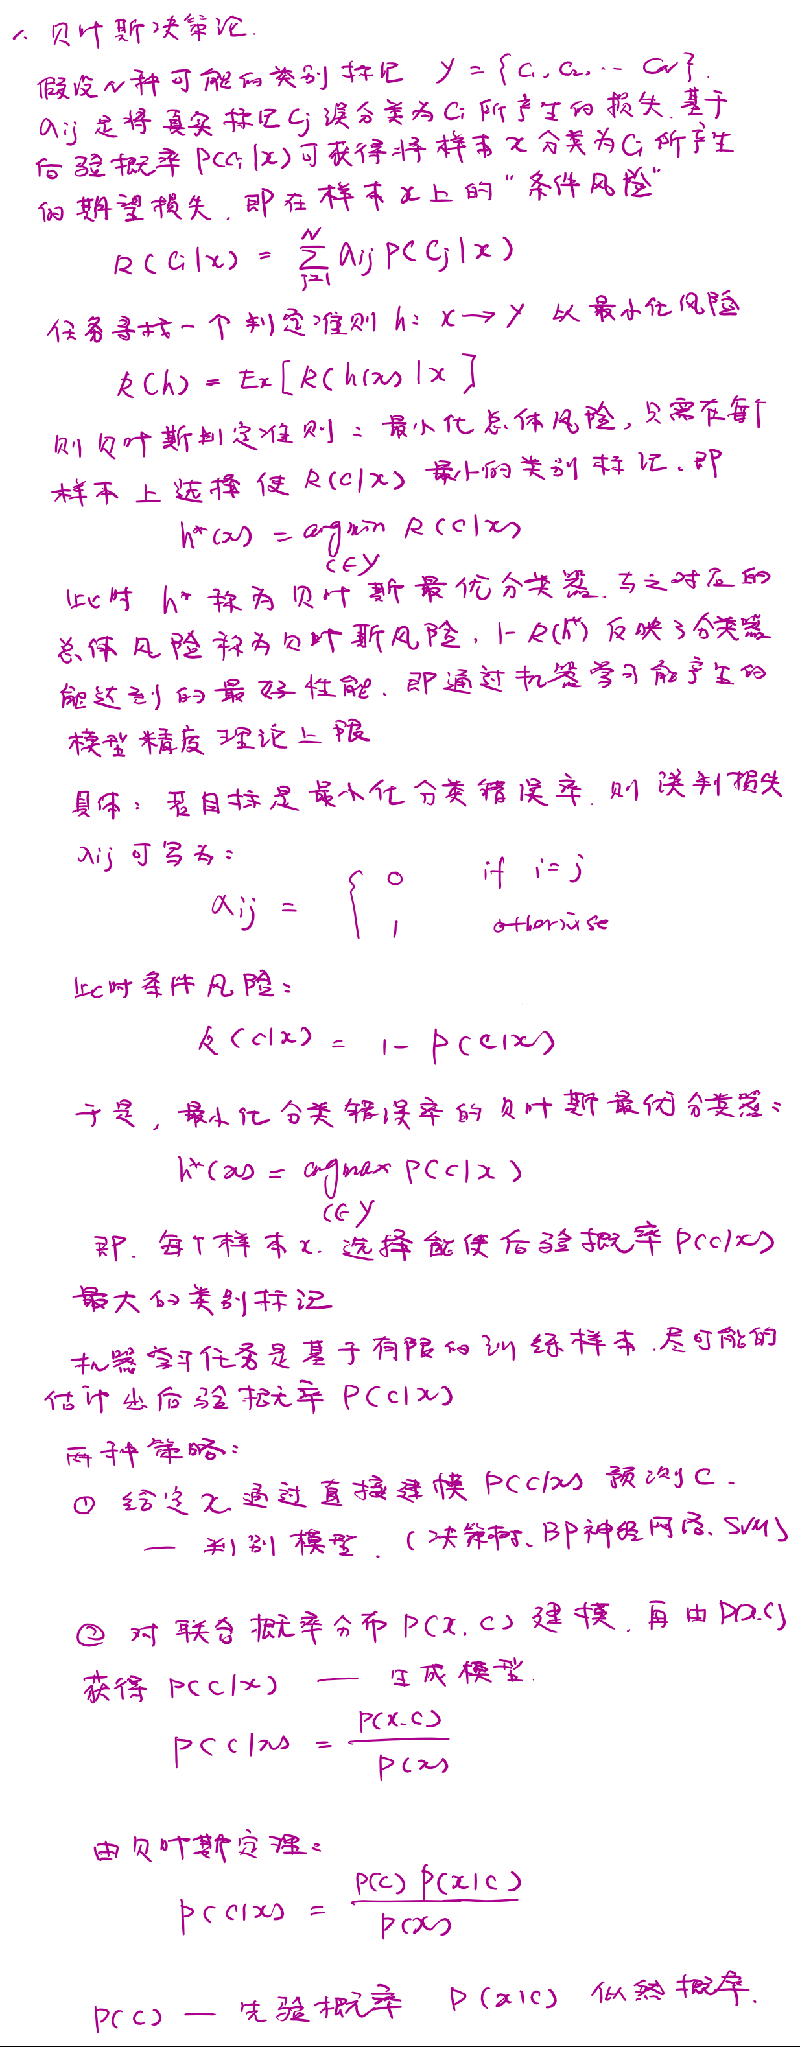 一、贝叶斯决策论.
假设N种可能的类别标记 Y = {C₁, C₂, ... C_N}.
λij 是将真实标记Cj误分类为Ci所产生的损失.基于
后验概率P(Ci|x)可获得将样本x分类为Ci所产生
的期望损失,即在样本x上的"条件风险"
R(Ci|x) = ∑_{j=1}^{N} λij P(Cj|x)
任务寻找一个判定准则h: x→Y 以最小化风险
R(h) = Ex[R(h(x)|x]
则贝叶斯判定准则:最小化总体风险,只需在每个
样本上选择使R(c|x)最小的类别标记、即
h*(x) = argmin R(c|x)
c∈Y
此时 h* 称为贝叶斯最优分类器.与之对应的
总体风险称为贝叶斯风险,1-R(h*)反映了分类器
能达到的最好性能.即通过机器学习能产生的
模型精度理论上限
具体:若目标是最小化分类错误率.则误判损失
λij可写为:
λij = { 0 if i=j
1 otherwise
此时条件风险:
R(c|x) = 1- P(c|x)
于是,最小化分类错误率的贝叶斯最优分类器:
h*(x) = argmax P(c|x)
c∈Y
即.每个样本x.选择能使后验概率P(c|x)
最大的类别标记
机器学习任务是基于有限的训练样本.尽可能的
估计出后验概率P(c|x)
两种策略:
① 给定x通过直接建模P(c|x)预测C.
— 判别模型.(决策树、BP神经网络、SVM)
② 对联合概率分布P(x,c)建模.再由P(x,c)
获得P(c|x) — 生成模型.
P(c|x) = P(x,c) / P(x)
由贝叶斯定理:
P(c|x) = P(c) P(x|c) / P(x)
P(c) — 先验概率 P(x|c) 似然概率.